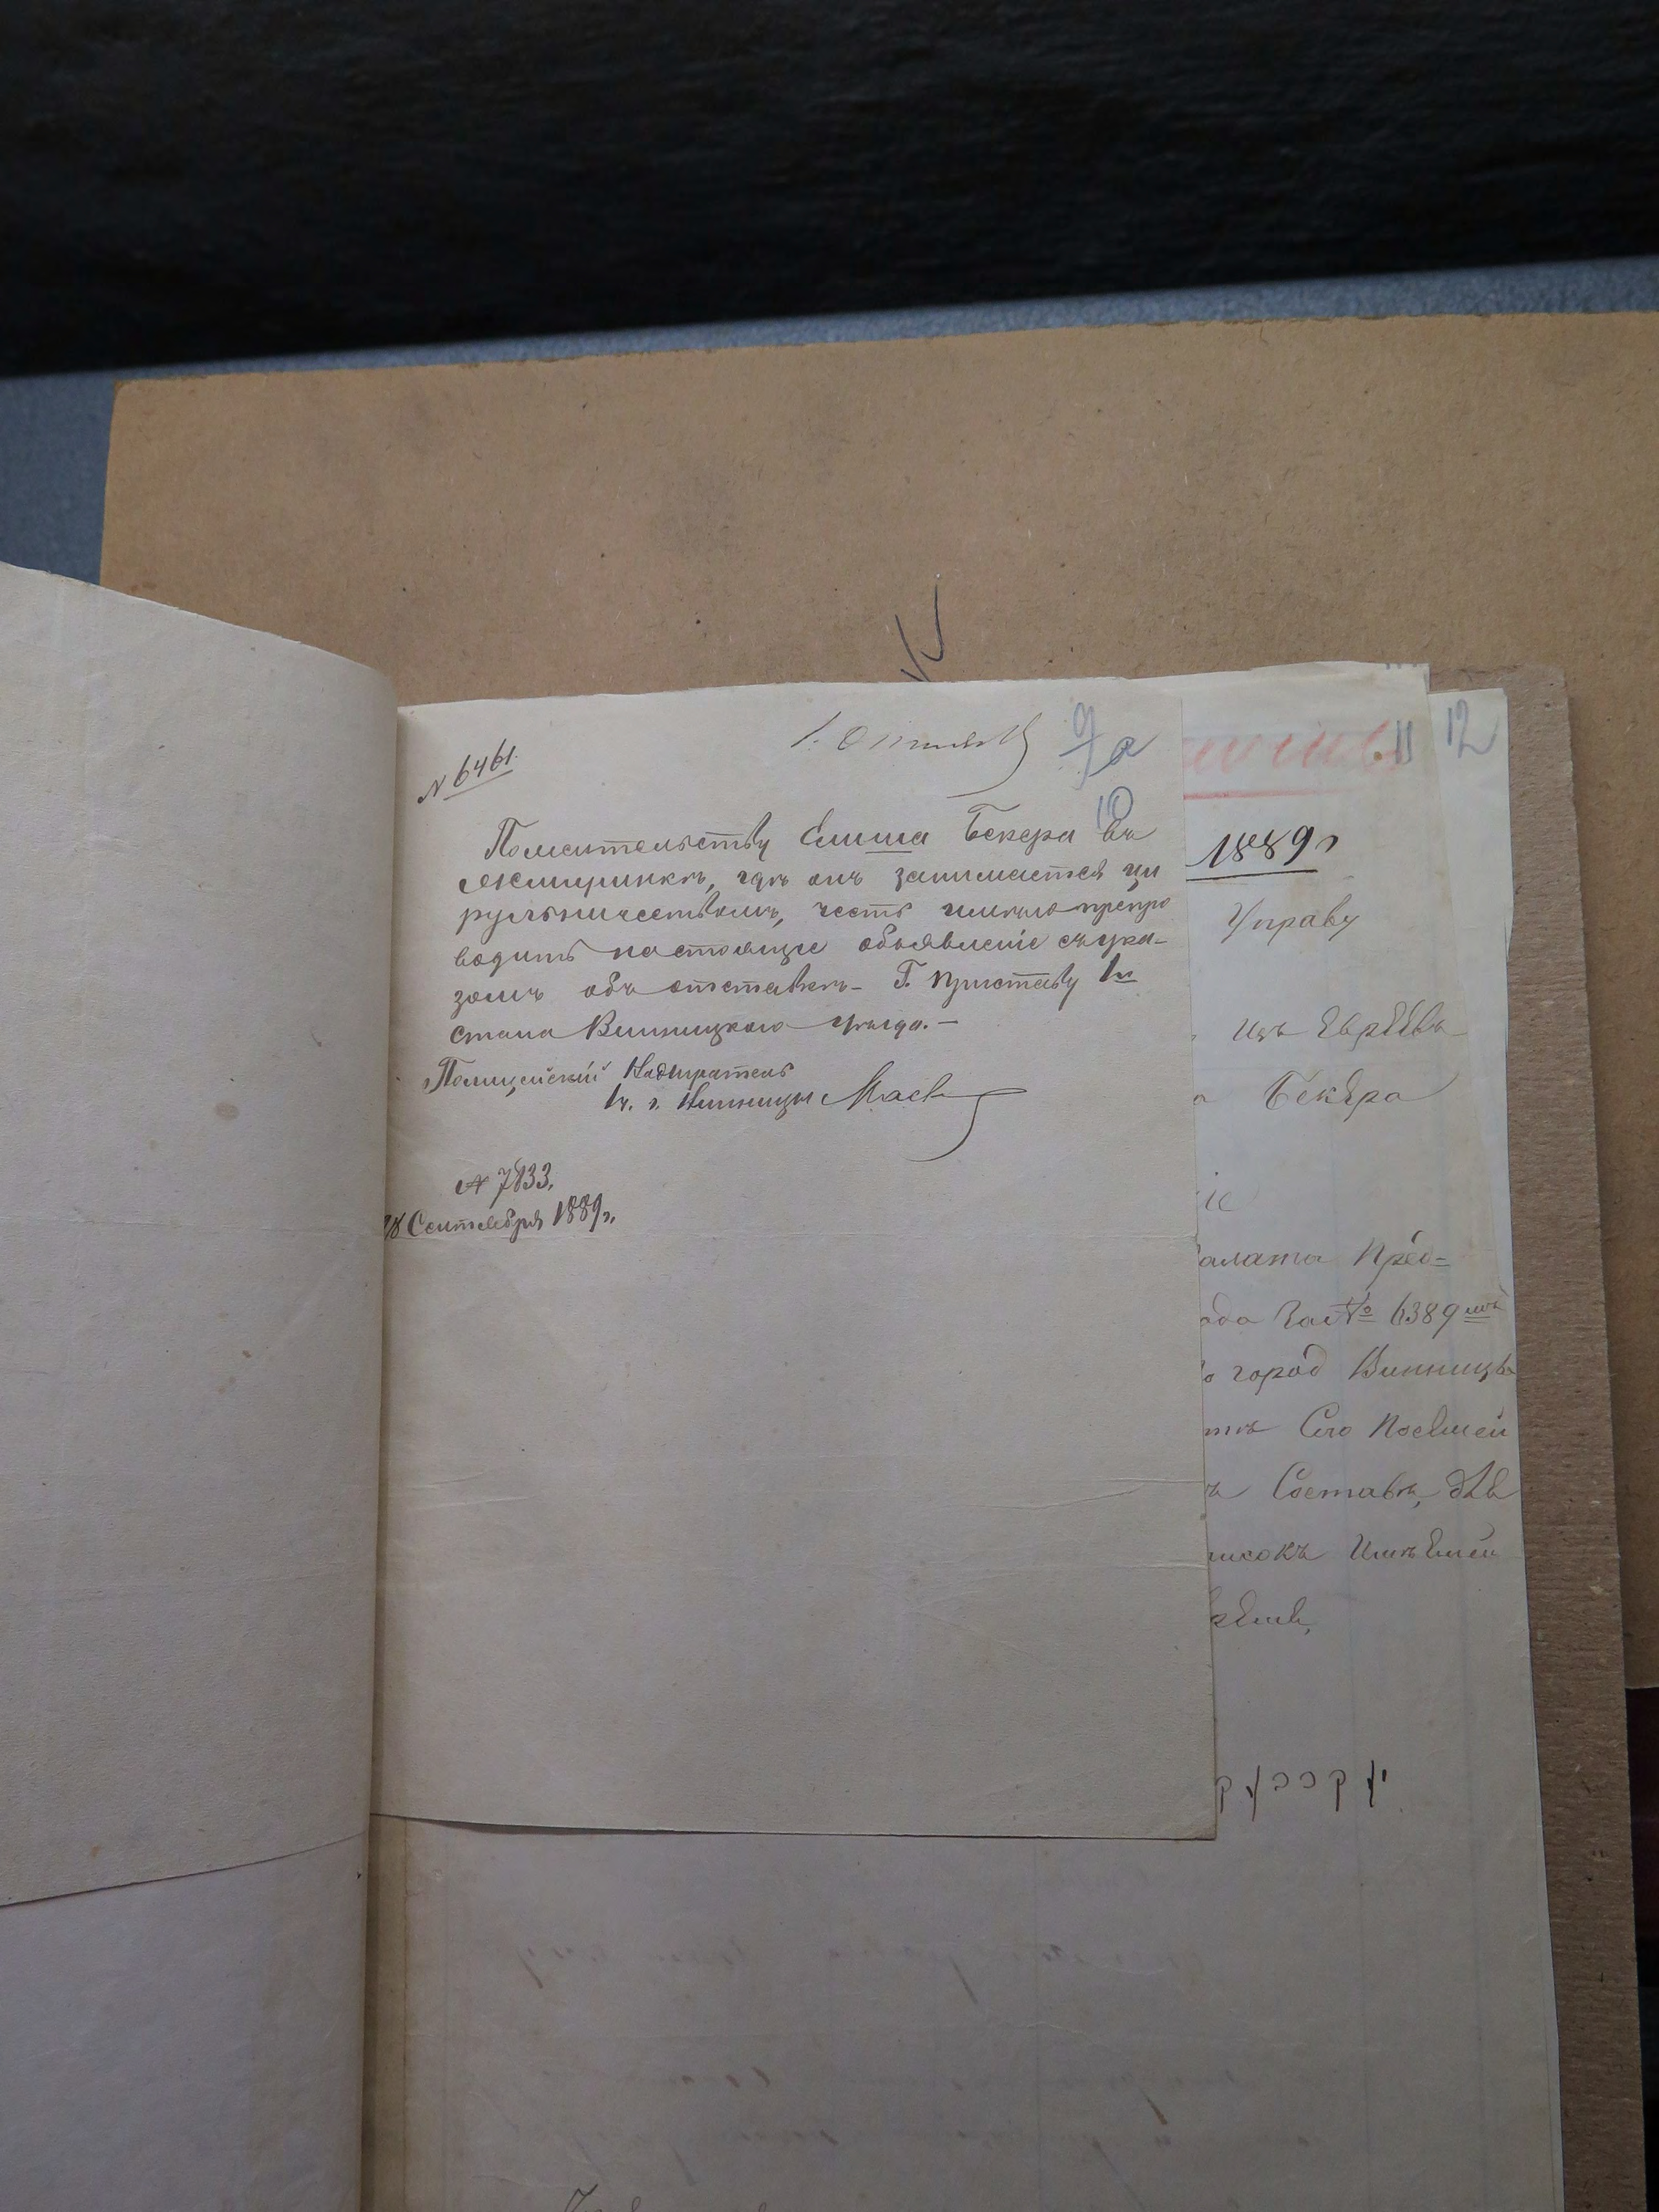 № 6461.
1. Октяб
9/а
10
11
12
Пожительству Елиша Бекера въ
Жмеринкѣ, гдѣ онъ занимается ци
рульничествомъ, честь имѣю препро
водить настоящее объявленіе съ ука-
зомъ объ отставкѣ Г. Приставу 1го
стана Винницкаго уѣзда.—
Полицейскій Надзиратель
1ч. г. Винницы
№ 7833.
18 Сентября 1889 г.
1889 г
Управу
изъ Еврѣевъ
Бекера
іе
алата Пред=
ода За № 6389
город Винницы
Его
Составѣ,
исокъ